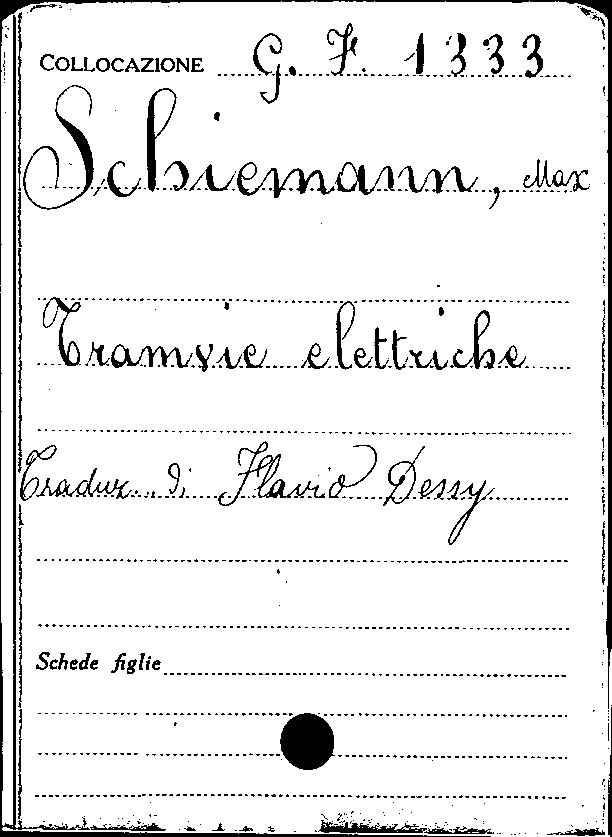 COLLOCAZIONE G. F. 1333
Schiemann, Max
Tramvie elettriche
Traduz. di Flavio Dessy
Schede figlie